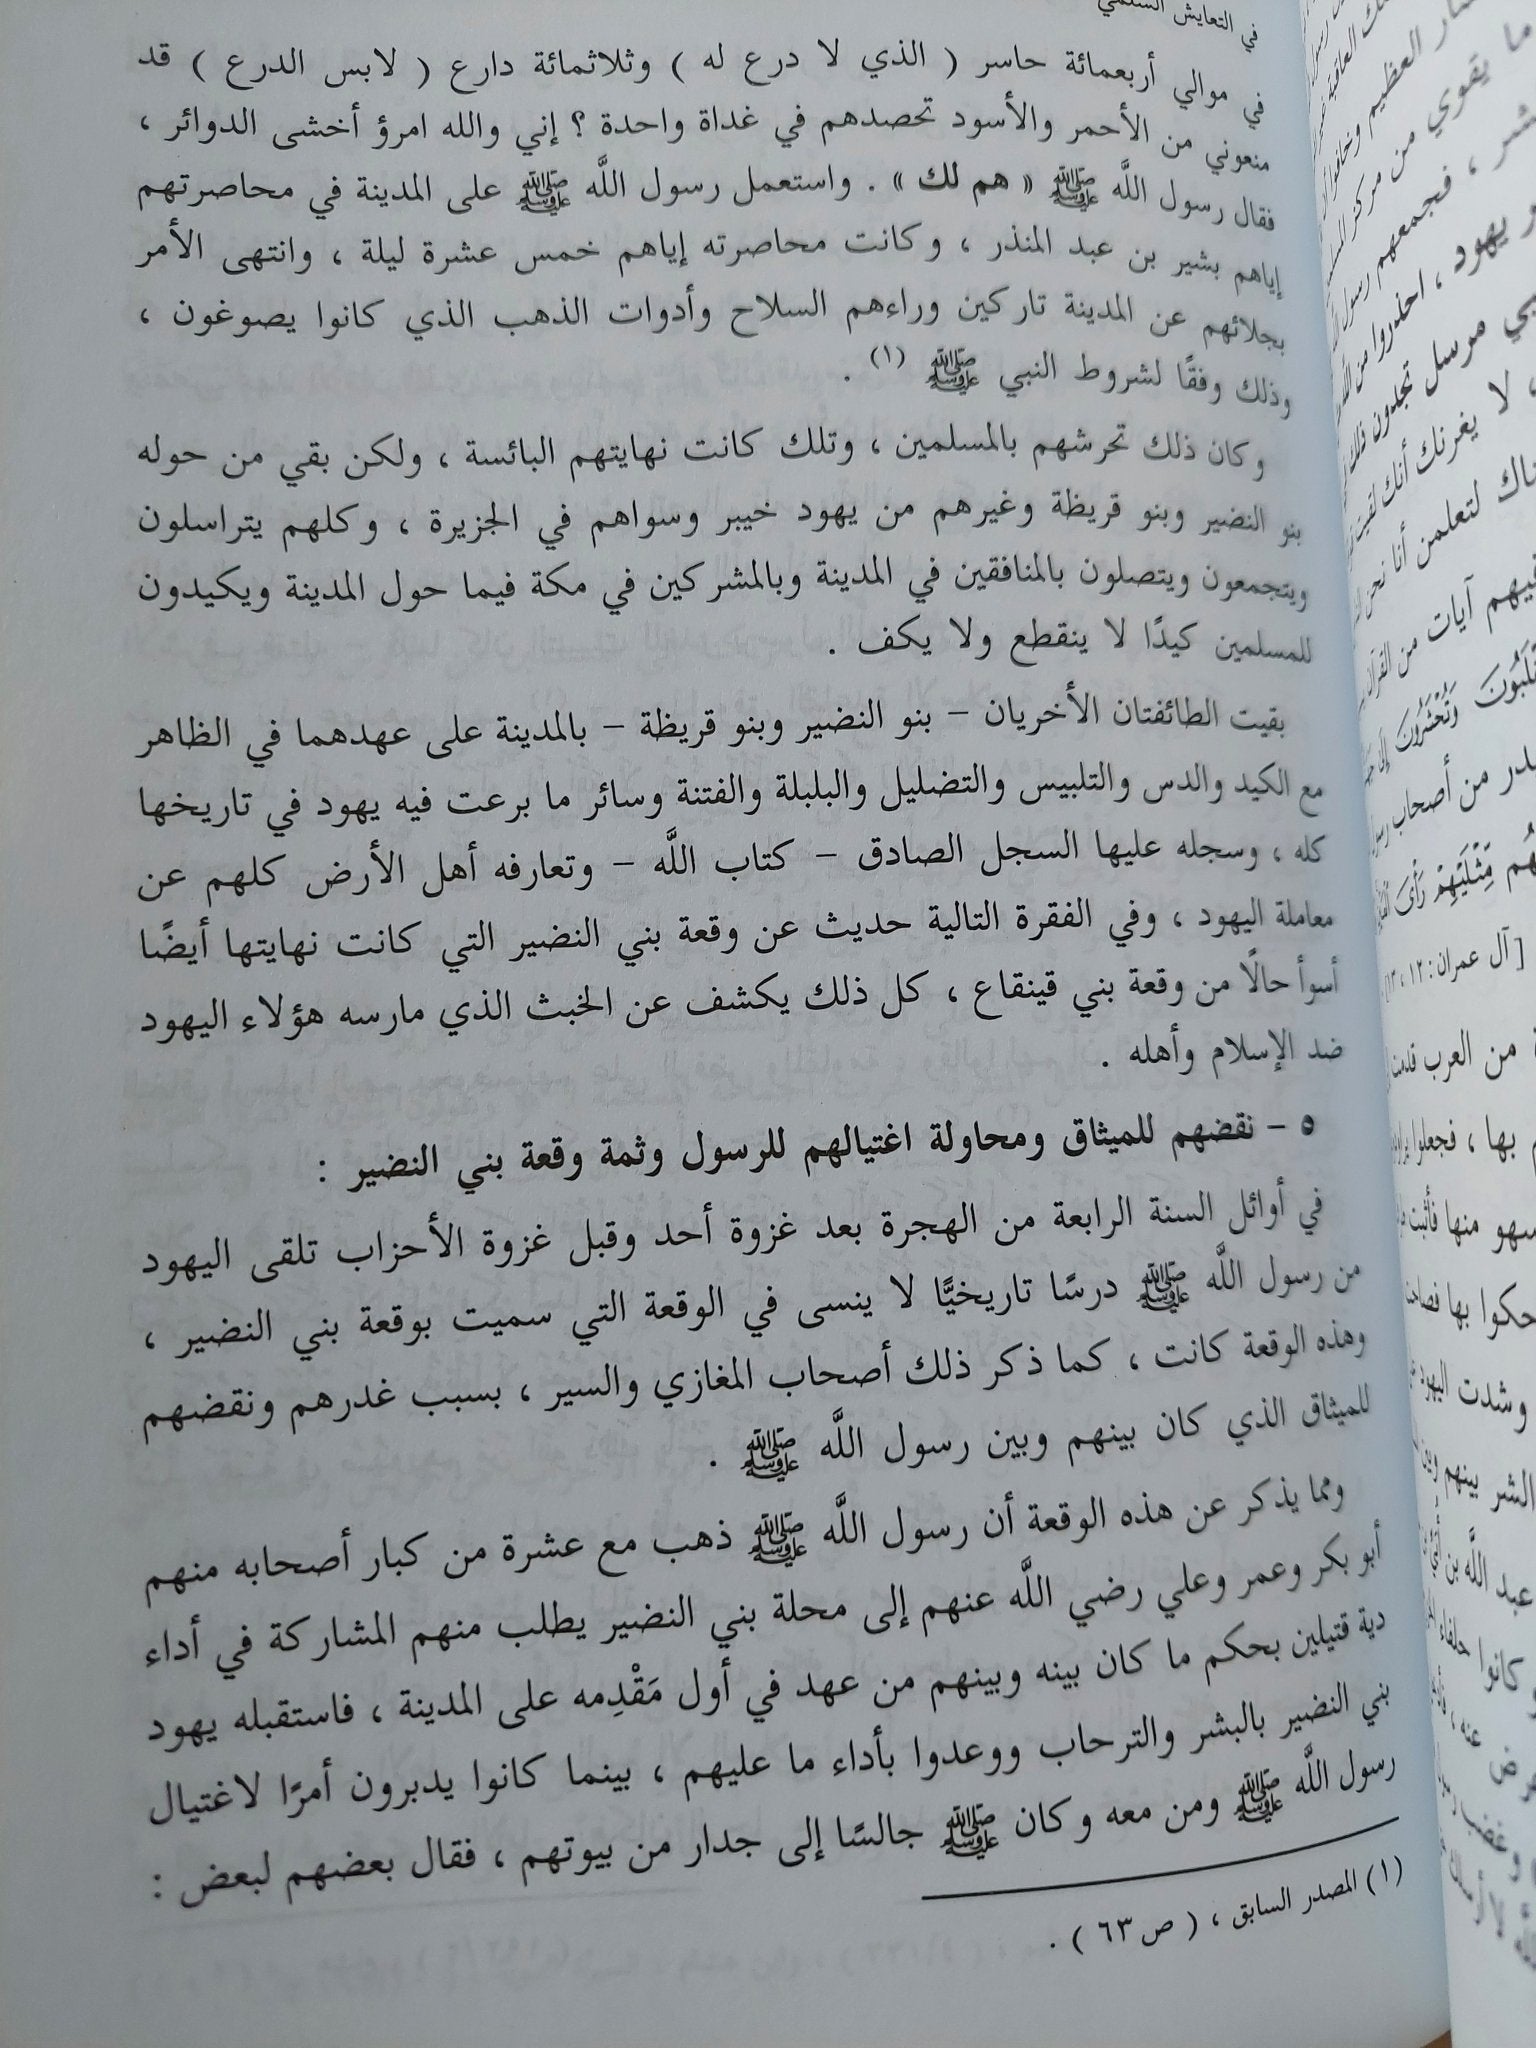 في التعايش السلمي
في موالي أربعمائة حاسر ( الذي لا درع له ) وثلاثمائة دارع ( لابس الدرع ) قد
منعوني من الأحمر والأسود تحصدهم في غداة واحدة ؟ إني والله امرؤ أخشى الدوائر ،
فقال رسول اللَّه ﷺ « هم لك » . واستعمل رسول اللَّه ﷺ على المدينة في محاصرتهم
إياهم بشير بن عبد المنذر ، وكانت محاصرته إياهم خمس عشرة ليلة ، وانتهى الأمر
بجلائهم عن المدينة تاركين وراءهم السلاح وأدوات الذهب الذي كانوا يصوغون ،
وذلك وفقًا لشروط النبي ﷺ (١) .
وكان ذلك تحرشهم بالمسلمين ، وتلك كانت نهايتهم البائسة ، ولكن بقي من حوله
بنو النضير وبنو قريظة وغيرهم من يهود خيبر وسواهم في الجزيرة ، وكلهم يتراسلون
ويتجمعون ويتصلون بالمنافقين في المدينة وبالمشركين في مكة فيما حول المدينة ويكيدون
للمسلمين كيدًا لا ينقطع ولا يكف .
بقيت الطائفتان الأخريان – بنو النضير وبنو قريظة – بالمدينة على عهدهما في الظاهر
مع الكيد والدس والتلبيس والتضليل والبلبلة والفتنة وسائر ما برعت فيه يهود في تاريخها
كله ، وسجله عليها السجل الصادق – كتاب اللَّه – وتعارفه أهل الأرض كلهم عن
معاملة اليهود ، وفي الفقرة التالية حديث عن وقعة بني النضير التي كانت نهايتها أيضًا
أسوأ حالًا من وقعة بني قينقاع ، كل ذلك يكشف عن الخبث الذي مارسه هؤلاء اليهود
ضد الإسلام وأهله .
٥ – نقضهم للميثاق ومحاولة اغتيالهم للرسول وثمة وقعة بني النضير :
في أوائل السنة الرابعة من الهجرة بعد غزوة أحد وقبل غزوة الأحزاب تلقى اليهود
من رسول اللَّه ﷺ درسًا تاريخيًّا لا ينسى في الوقعة التي سميت بوقعة بني النضير ،
وهذه الوقعة كانت ، كما ذكر ذلك أصحاب المغازي والسير ، بسبب غدرهم ونقضهم
للميثاق الذي كان بينهم وبين رسول اللَّه ﷺ .
ومما يذكر عن هذه الوقعة أن رسول اللَّه ﷺ ذهب مع عشرة من كبار أصحابه منهم
أبو بكر وعمر وعلي رضي اللَّه عنهم إلى محلة بني النضير يطلب منهم المشاركة في أداء
دية قتيلين بحكم ما كان بينه وبينهم من عهد في أول مَقْدِمه على المدينة ، فاستقبله يهود
بني النضير بالبشر والترحاب ووعدوا بأداء ما عليهم ، بينما كانوا يدبرون أمرًا لاغتيال
رسول اللَّه ﷺ ومن معه وكان ﷺ جالسًا إلى جدار من بيوتهم ، فقال بعضهم لبعض :
(١) المصدر السابق ، ( ص ٦٣ ) .